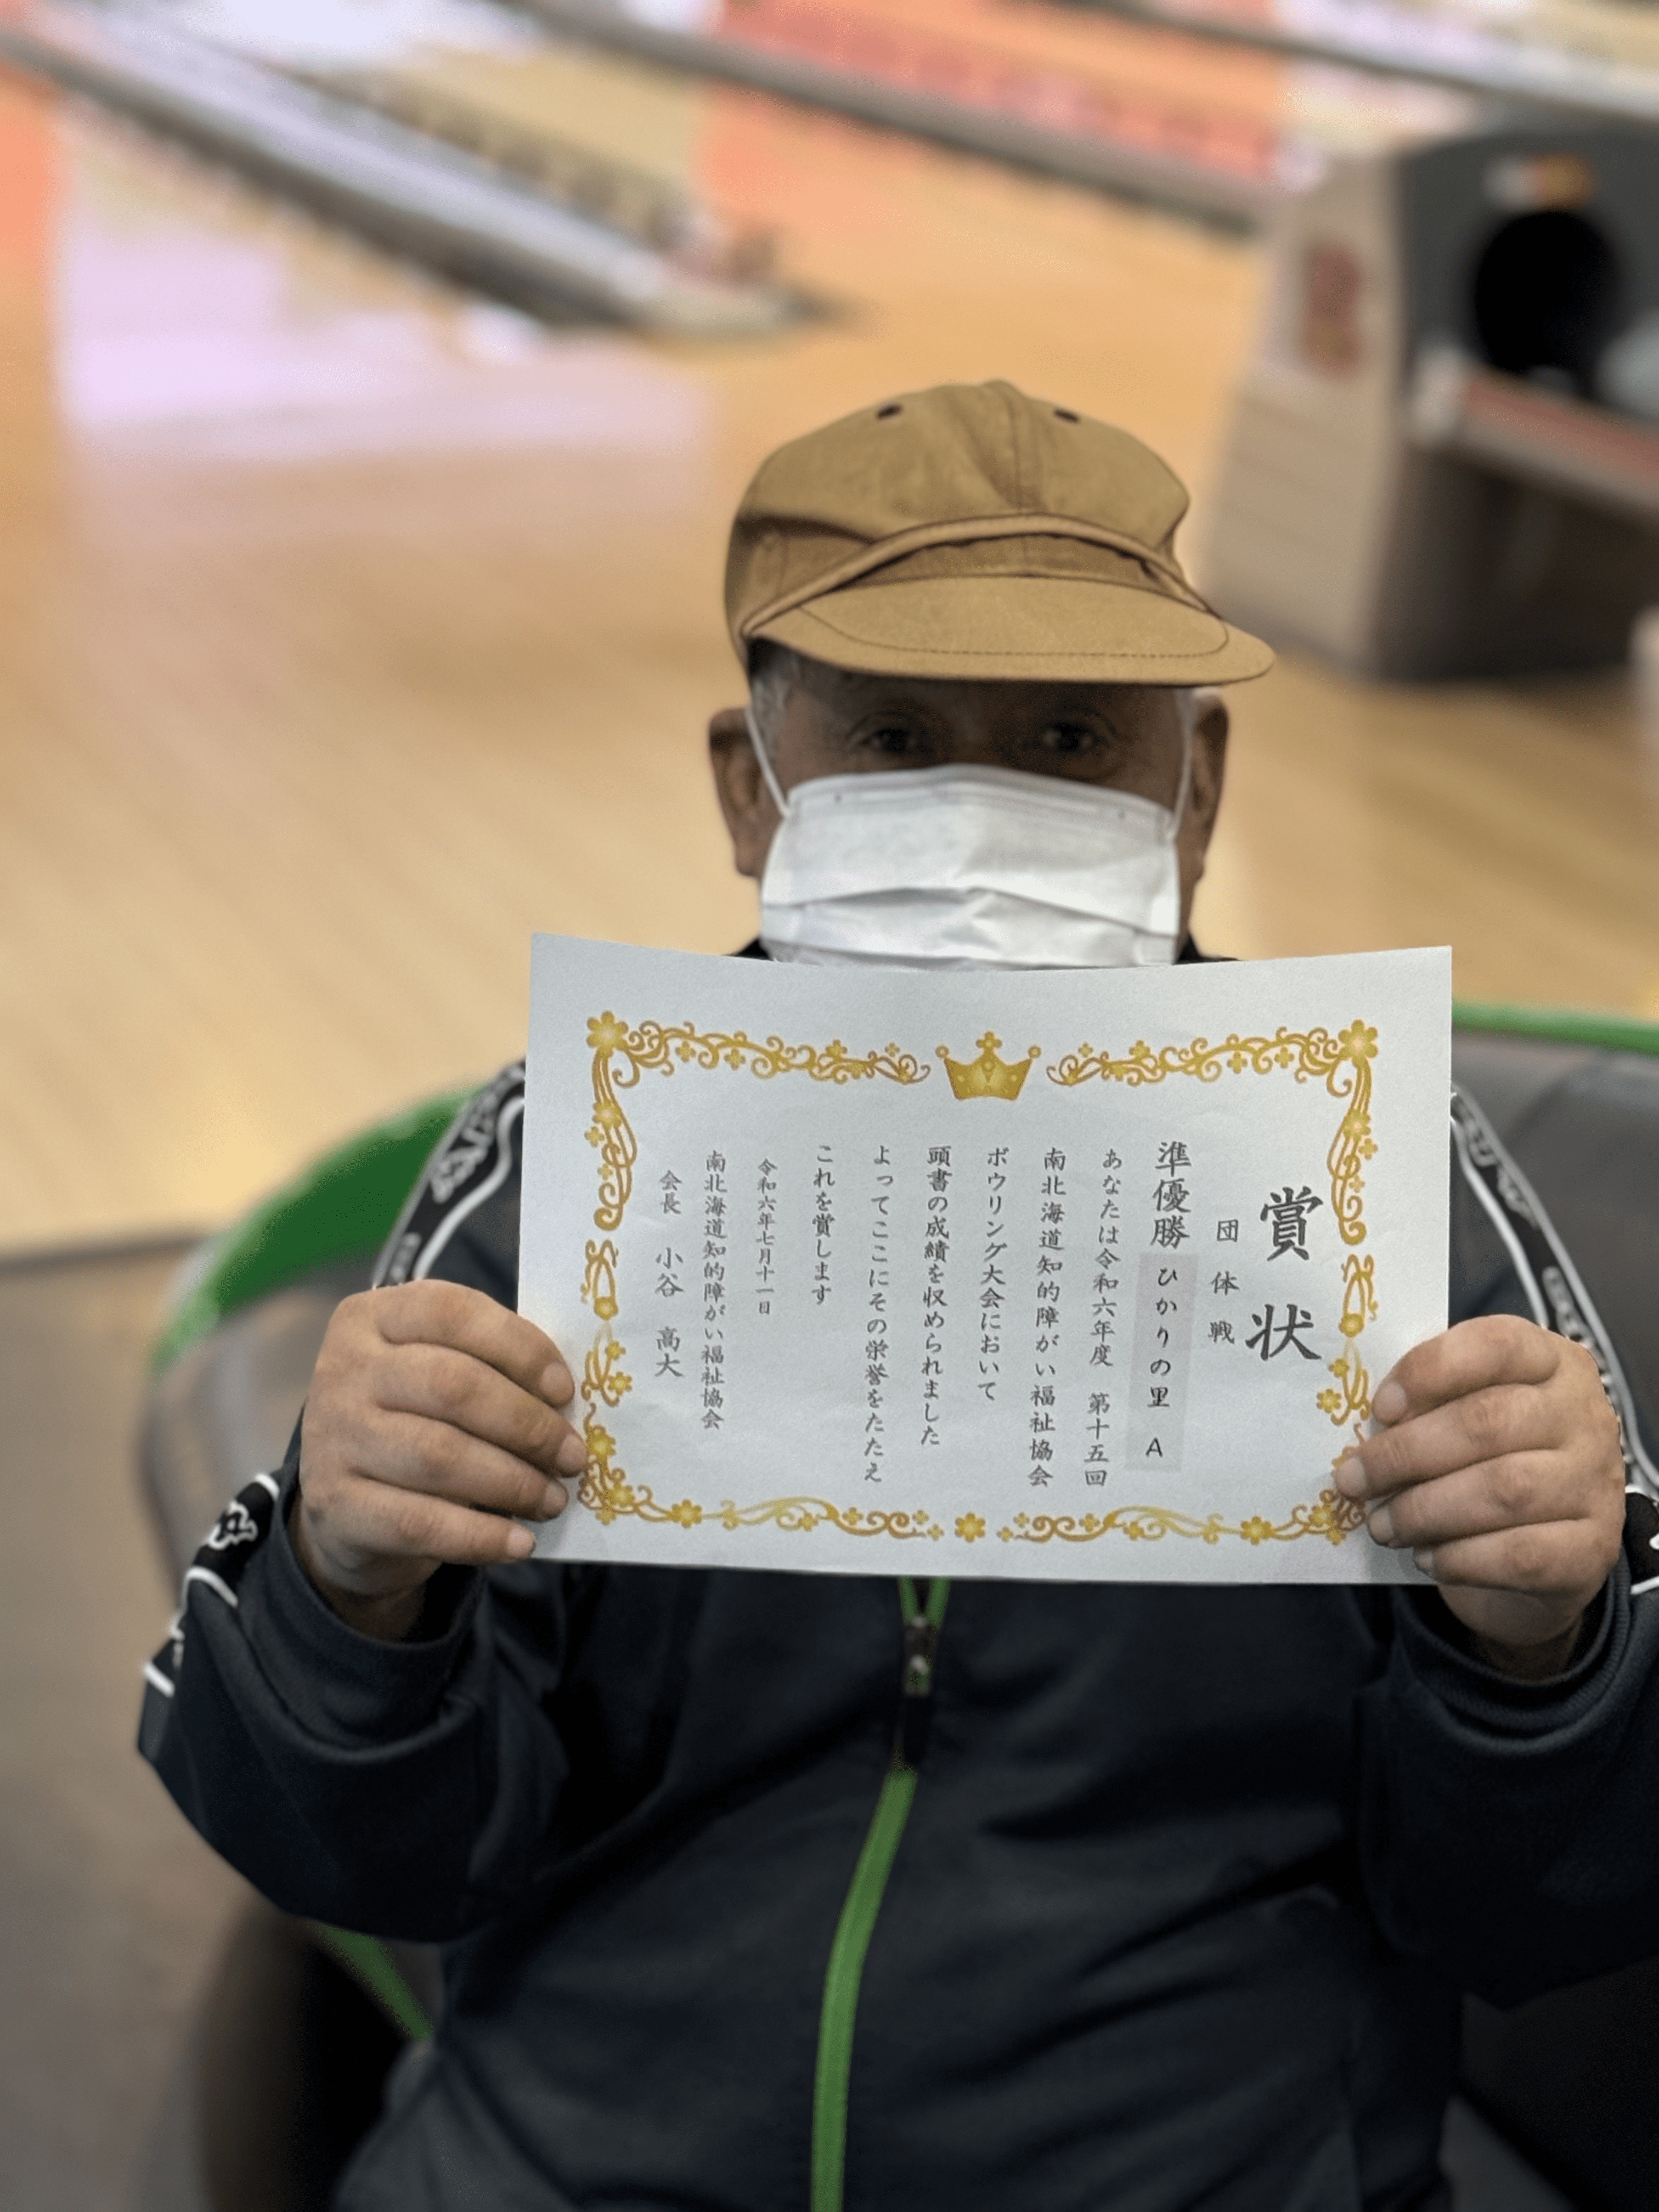 賞状
団体戦
準優勝 ひかりの里 A
あなたは令和六年度 第十五回
南北海道知的障がい福祉協会
ボウリング大会において
頭書の成績を収められました
よってここにその栄誉をたたえ
これを賞します
令和六年七月十一日
南北海道知的障がい福祉協会
会長 小谷 高大